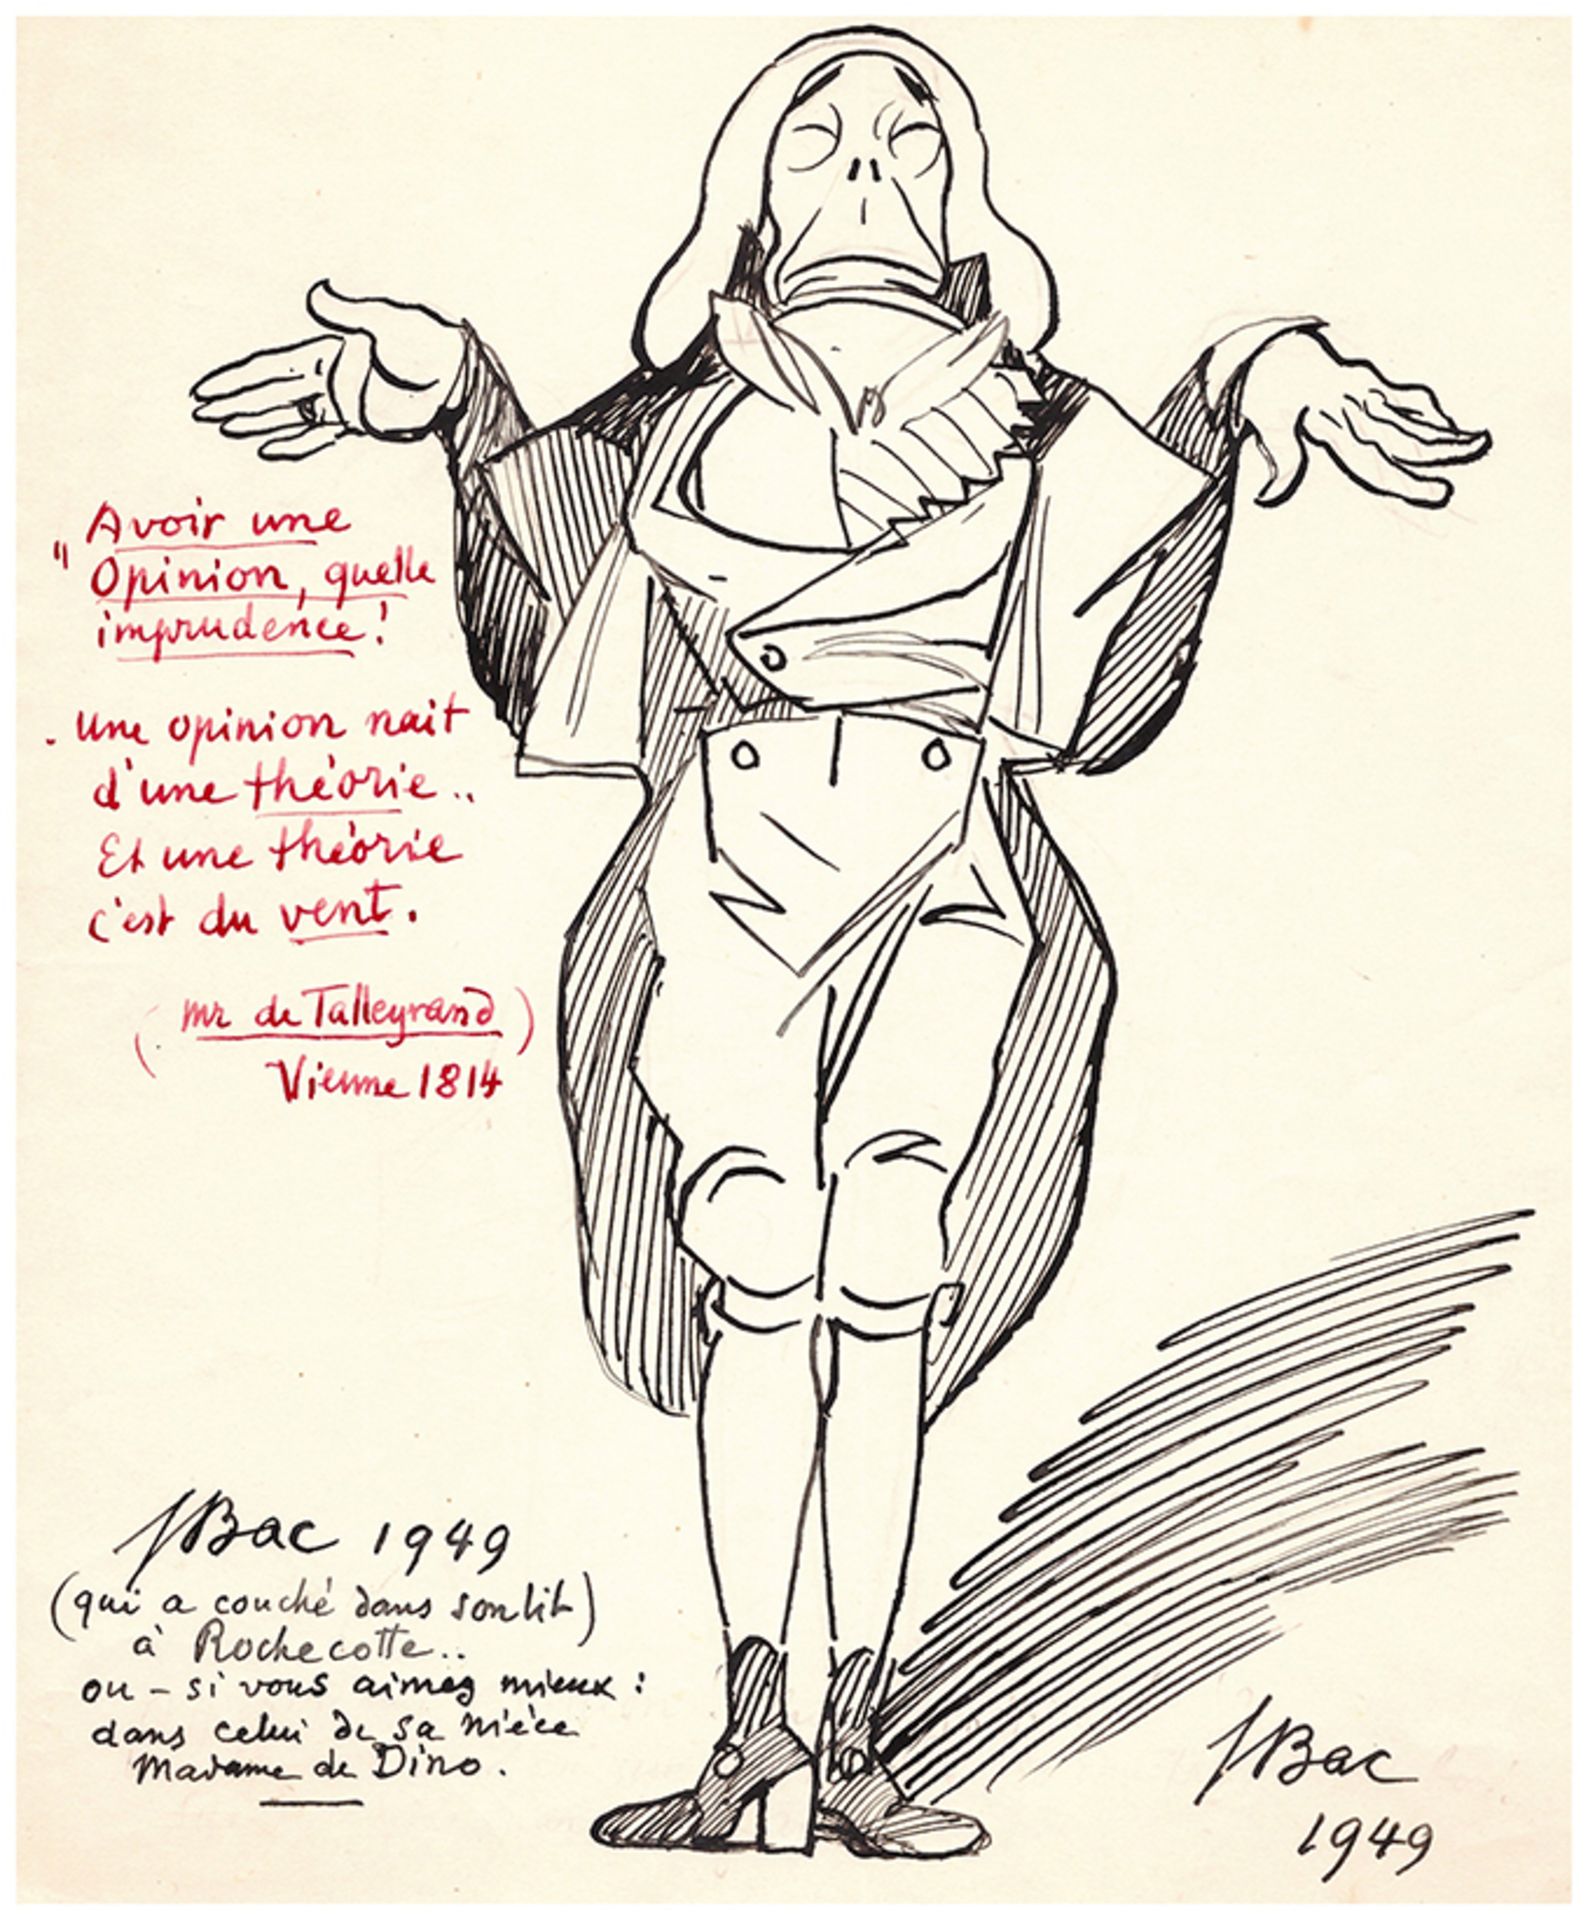 Avoir une
" Opinion, quelle
imprudence !
. Une opinion nait
d'une théorie ..
Et une théorie
c'est du vent.
( Mr de Talleyrand )
Vienne 1814
Bac 1949
(qui a couché dans son lit)
à Rochecotte..
ou – si vous aimez mieux :
dans celui de sa nièce
Madame de Dino.
Bac
1949